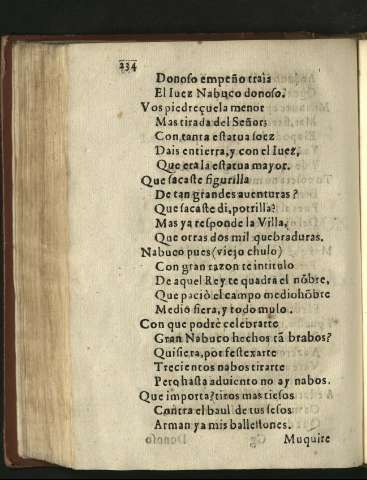 234
Donoso empeño traia
El Iuez Nabuco donoso.
Vos piedreçuela menor
Mas tirada del Señor:
Con tanta estatua soez
Dais entierra, y con el Iuez,
Que era la estatua mayor.
Que sacaste figurilla
De tan grandes auenturas?
Que sacaste di, potrilla?
Mas ya responde la Villa,
Que otras dos mil quebraduras.
Nabuco pues (viejo chulo)
Con gran razon te intitulo
De aquel Rey te quadra el nõbre,
Que paciò el campo mediohõbre
Medio fiera, y todo mulo.
Con que podrè celebrarte
Gran Nabuco hechos tã brabos?
Quisiera, por festexarte
Trecientos nabos tirarte
Pero hasta aduiento no ay nabos.
Que importa? tiros mas tiesos
Contra el baul de tus sesos
Arman ya mis ballestones.
Muquire